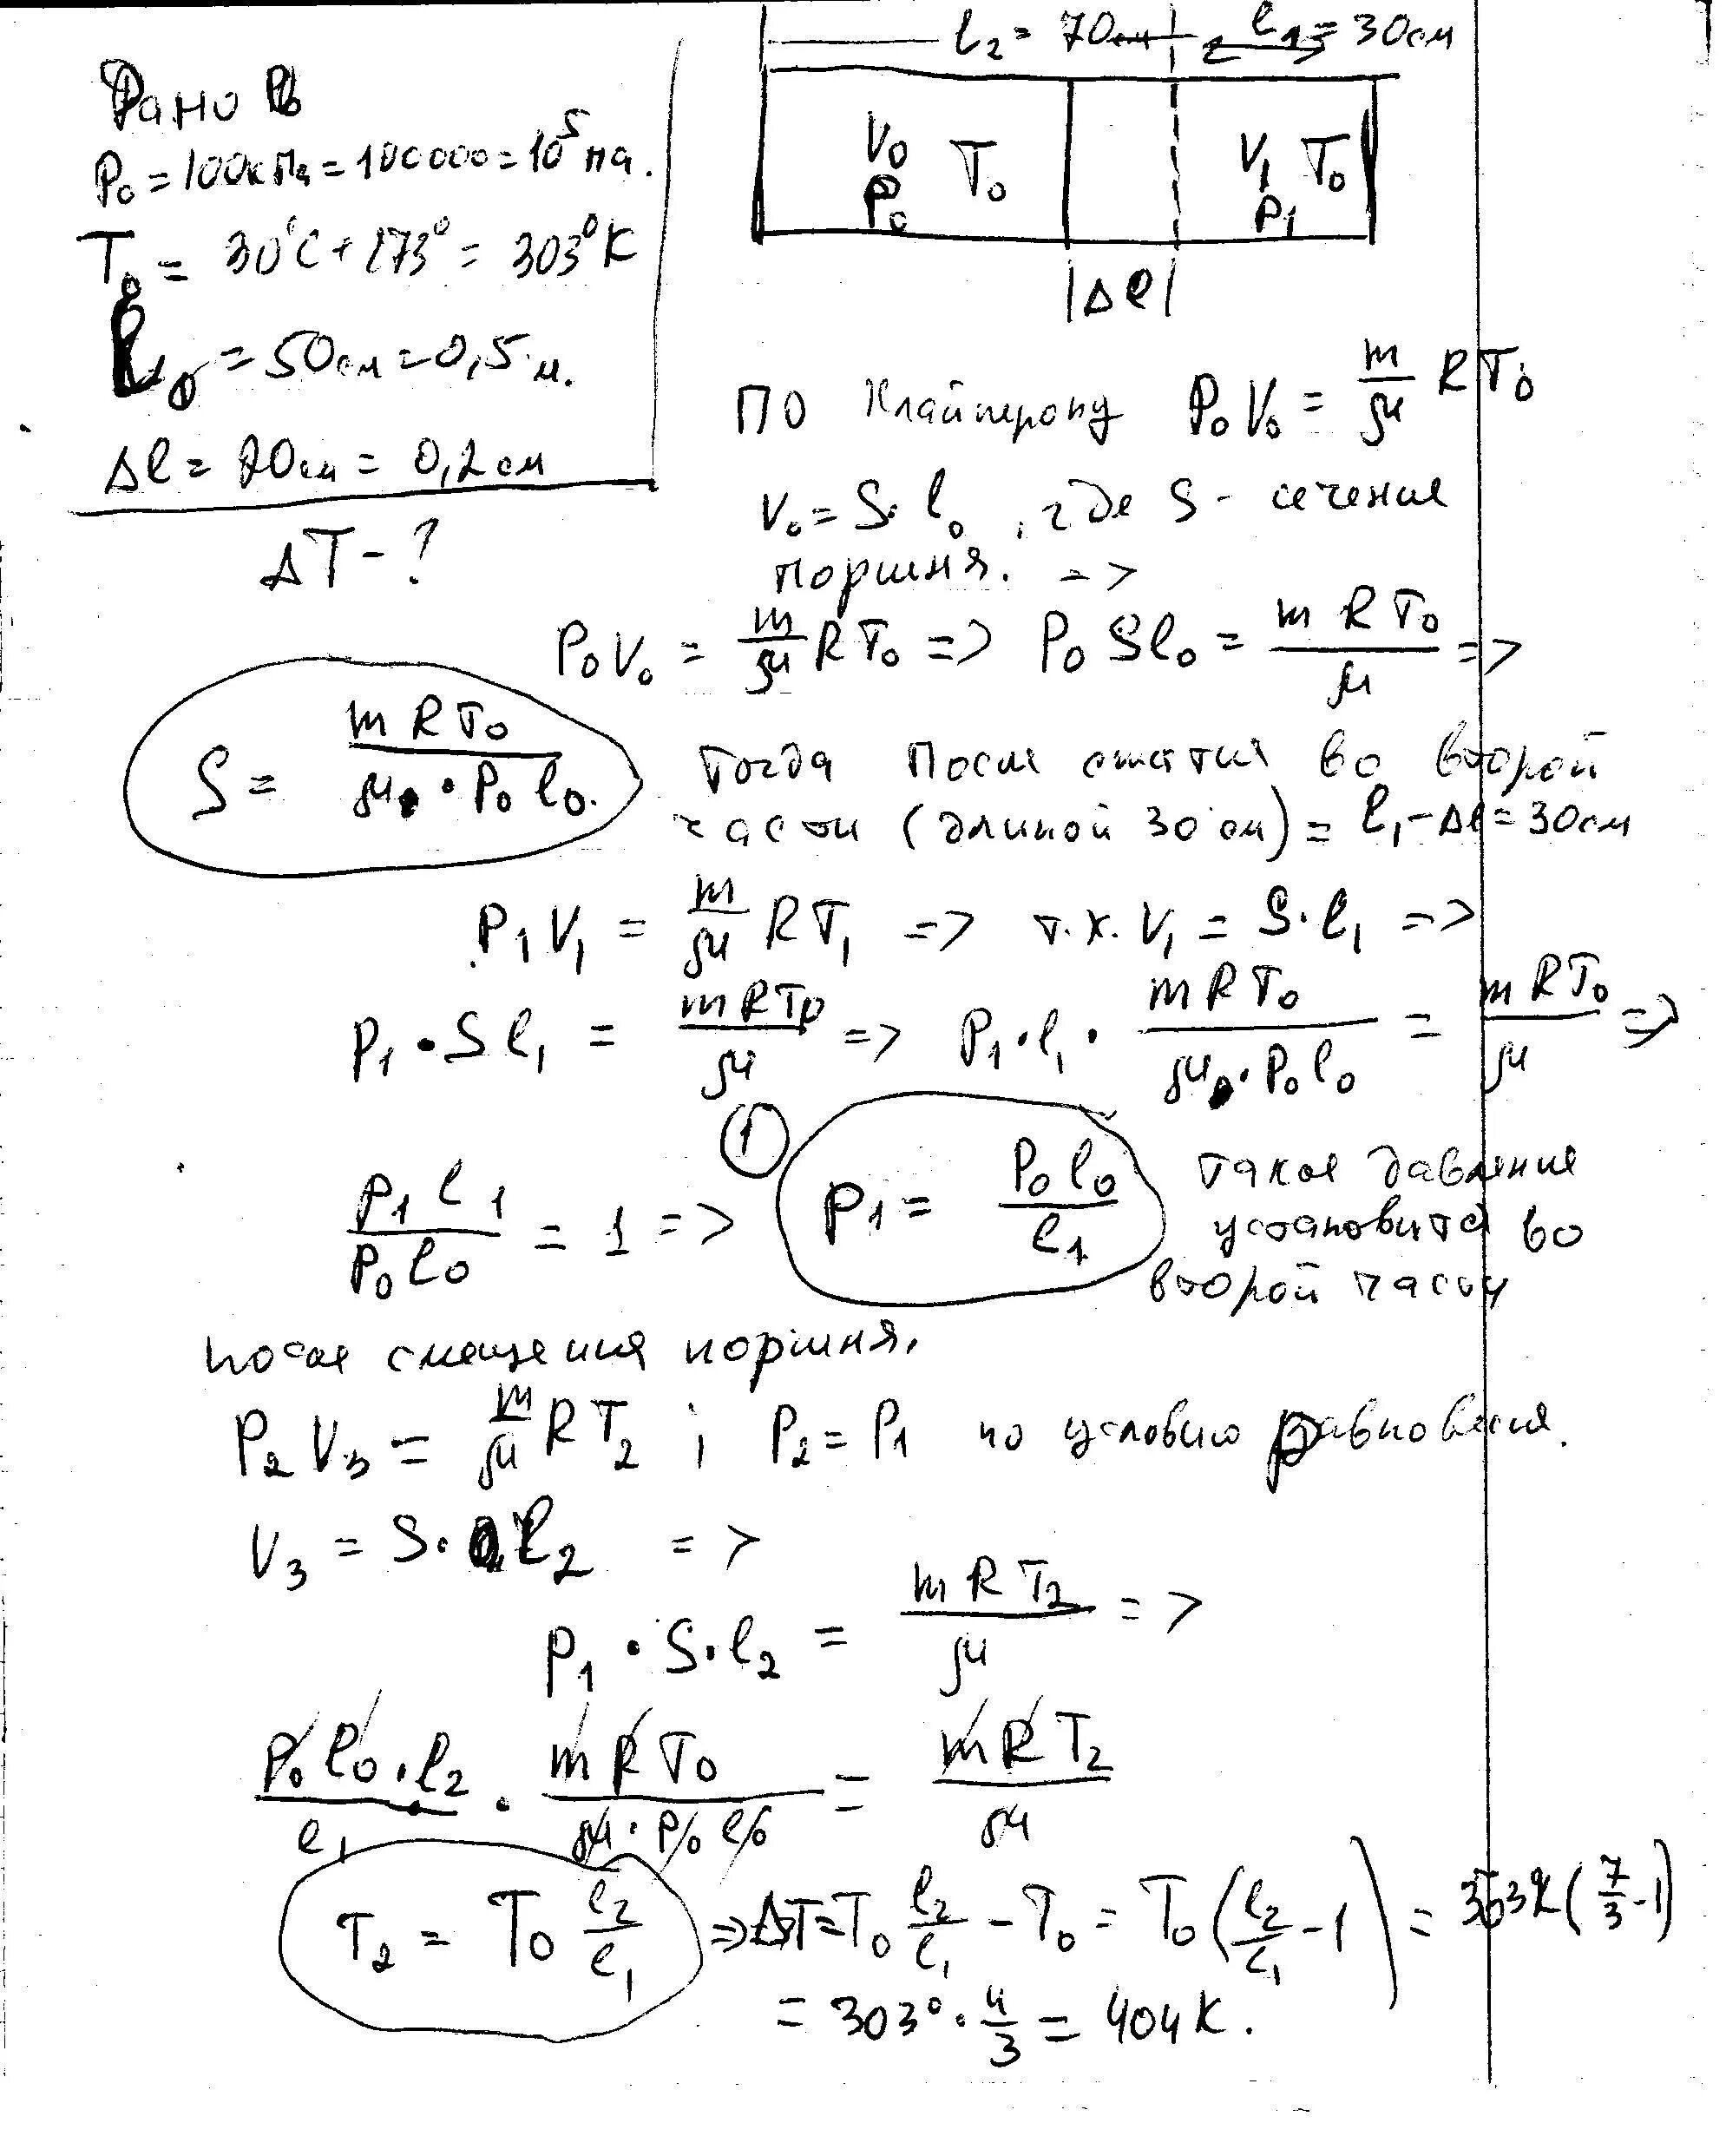 l₂ = 70см l₁ = 30см
Дано
P₀ = 100кПа = 100000 = 10⁵ па.
V₀ T₀ V₁ T₀
P₀ P₁
T₀ = 30°C + 273° = 303°K
|Δl|
l₀ = 50см = 0,5 м.
По Клайперону P₀V₀ = m/μ RT₀
Δl = 20см = 0,2см
V₀ = S·l₀, где S - сечения
ΔT - ?
поршня. =>
P₀V₀ = m/μ RT₀ => P₀Sl₀ = mRT₀/μ =>
S = mRT₀/μ·P₀l₀. Тогда после сжатия во второй
части (длиной 30 см) = l₁ - Δl = 30см
P₁V₁ = m/μ RT₁ => т.к. V₁ = S·l₁ =>
P₁·Sl₁ = mRT₀/μ => P₁·l₁· mRT₀/μ·P₀l₀ = mRT₀/μ =>
P₁l₁/P₀l₀ = 1 => ① P₁ = P₀l₀/l₁ такое давление
установится во
второй части
после смещения поршня.
P₂V₃ = m/μ RT₂ ; P₂ = P₁ по условию равновесия.
V₃ = S·l₂ =>
P₁·S·l₂ = mRT₂/μ =>
P₀l₀·l₂/l₁ · mRT₀/μ·P₀l₀ = mRT₂/μ
T₂ = T₀ l₂/l₁ => ΔT = T₀ l₂/l₁ - T₀ = T₀(l₂/l₁ - 1) = 303K(7/3 - 1)
= 303°·4/3 = 404K.